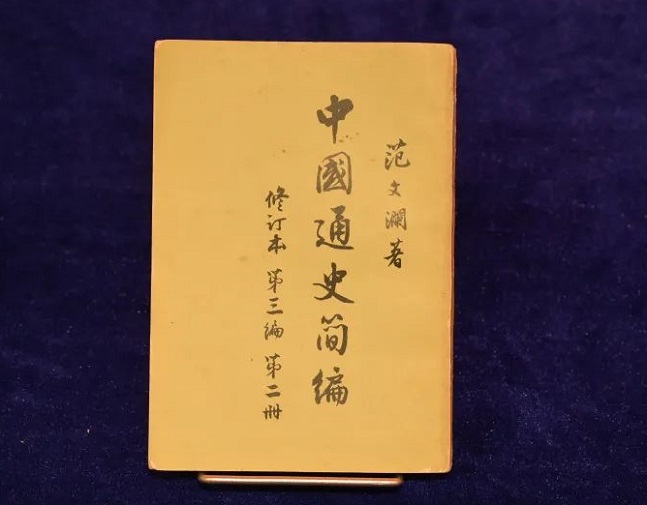 范文瀾著
中國通史简编
修订本 第三编 第二冊